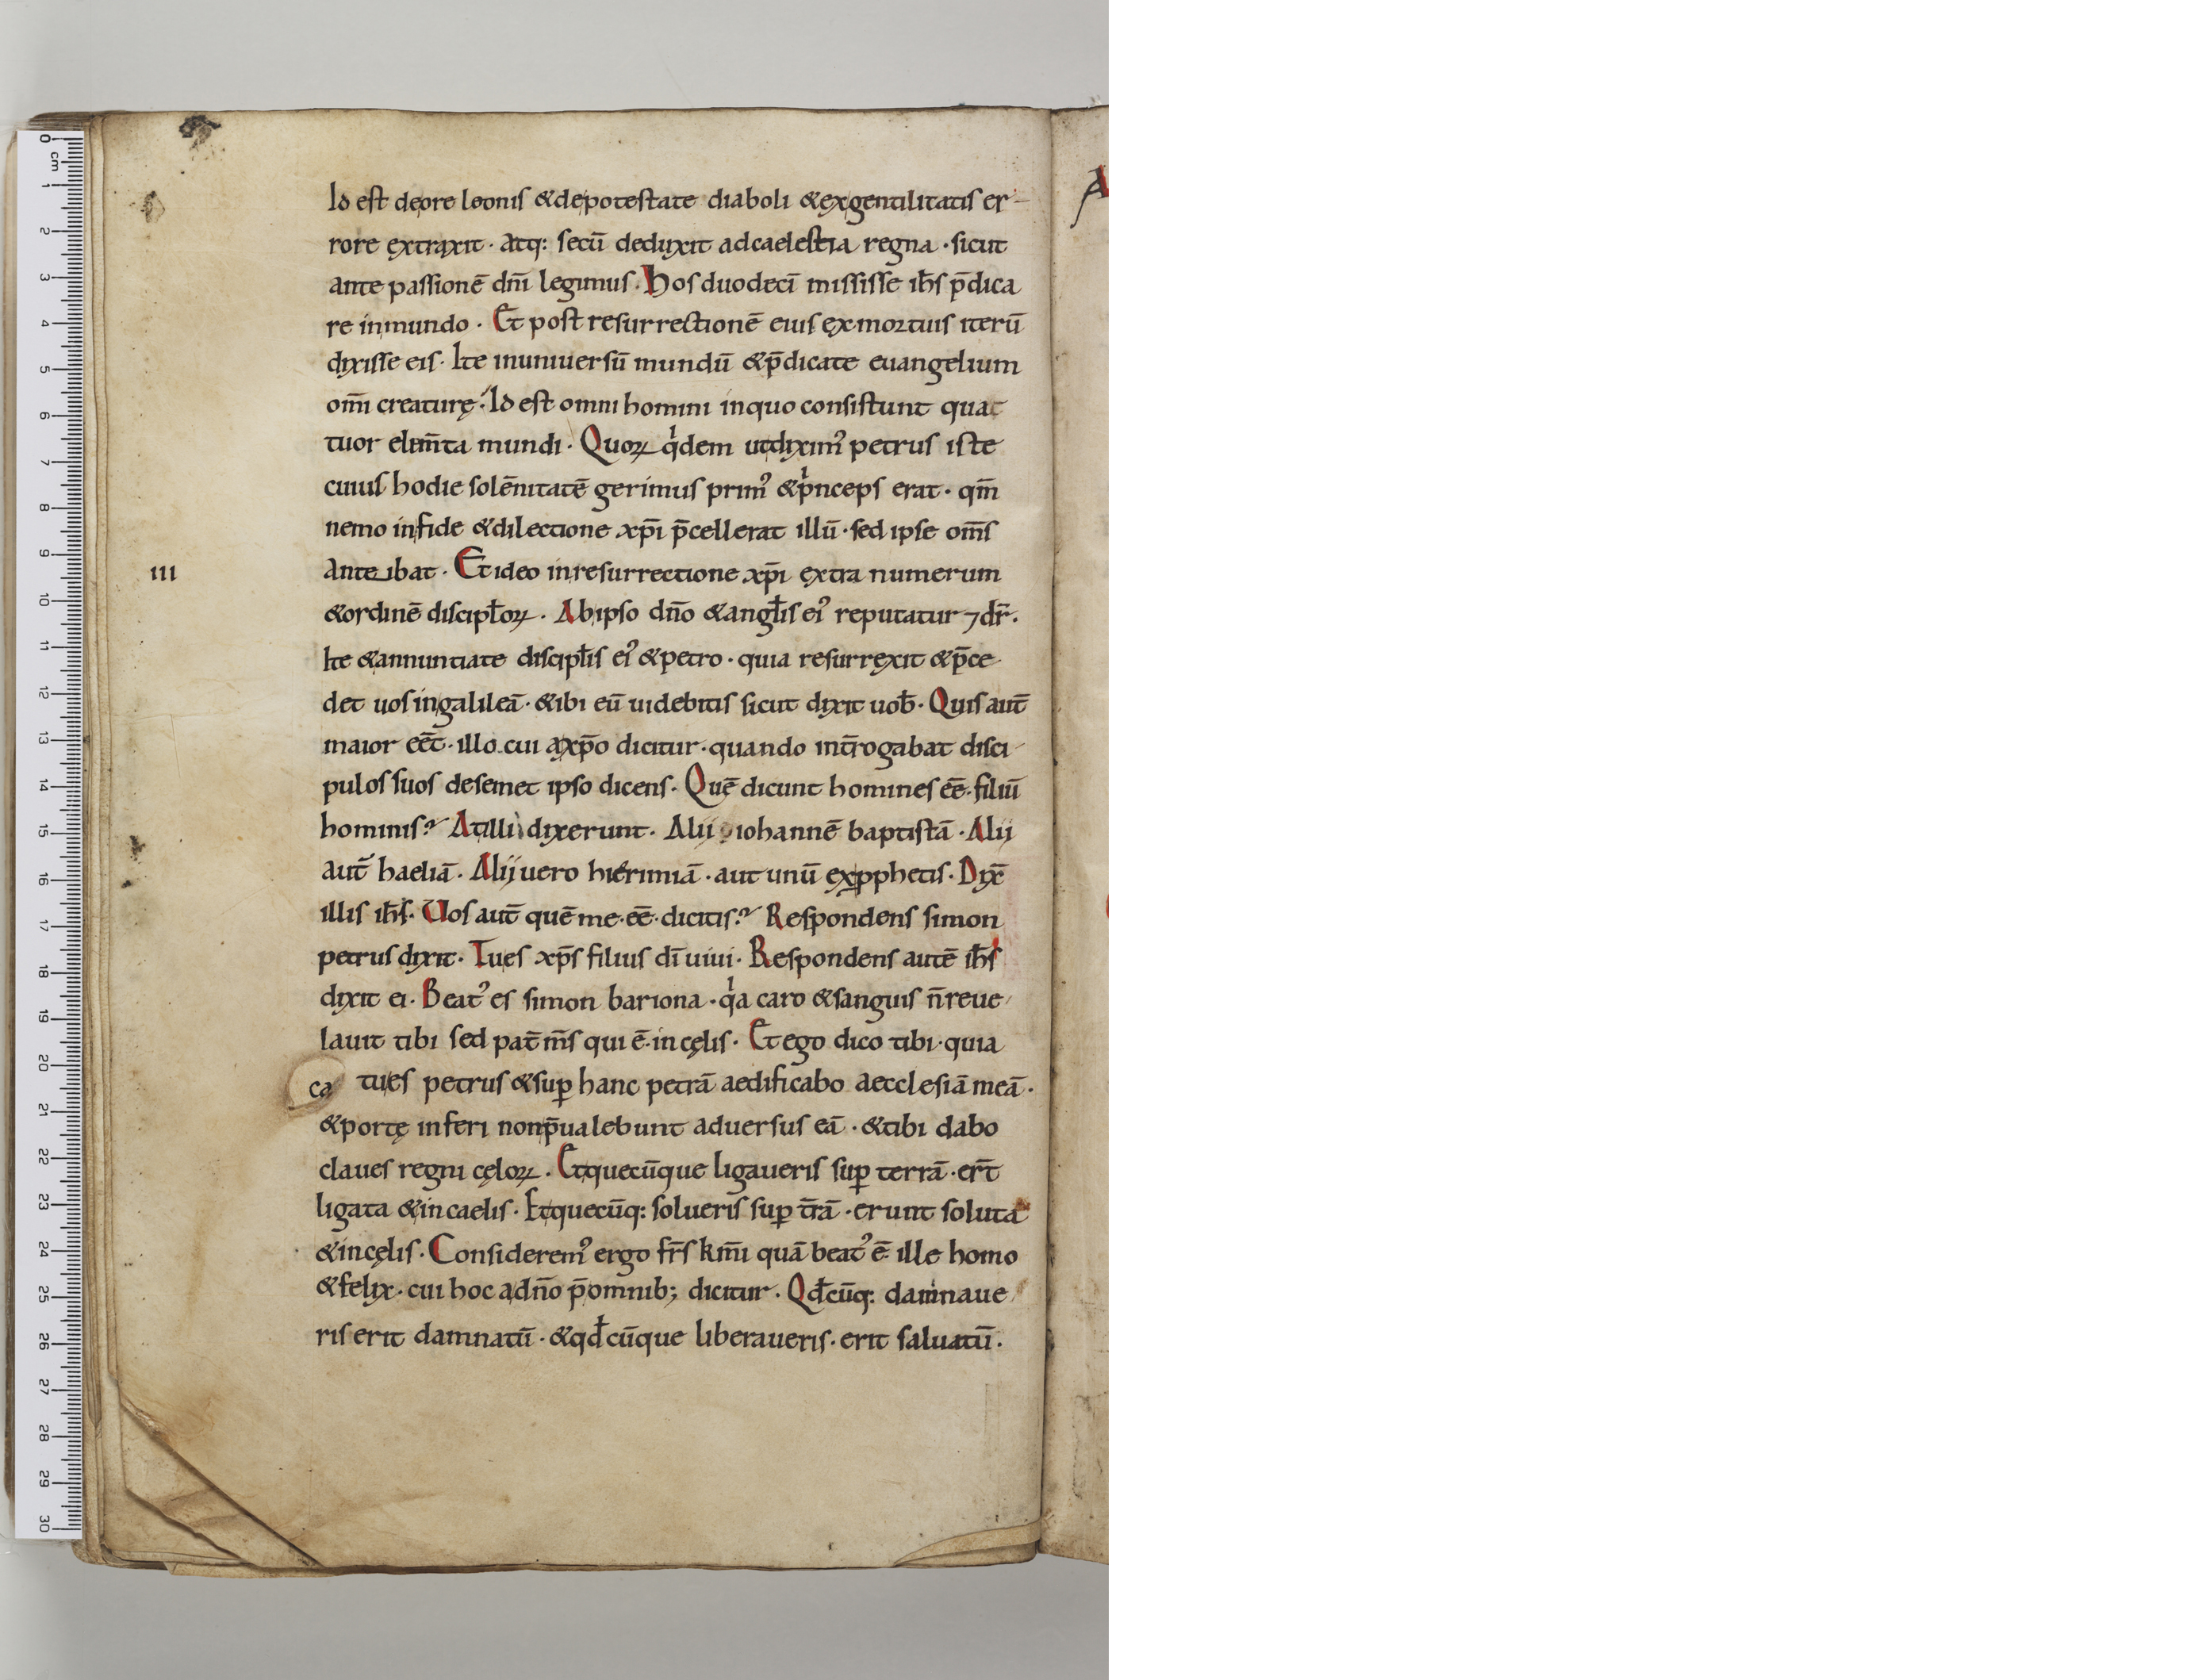 Id est deore leonis &depotestate diaboli &exgentilitatis er-
rore extraxit · atq: secū deduxit adcaelestia regna · sicut
ante passionē dn̄i legimus · Hos duodecī misisse ih̄s p̄dica
re inmundo · Et post resurrectionē eius exmortuis iterū
dixisse eis · Ite inuniuersū mundū &p̄dicate euangelium
om̄i creaturę · Id est omni homini inquo consistunt quat
tuor elem̄ta mundi · Quoꝝ qͥdem utdiximꝰ petrus iste
cuius hodie solēnitatē gerimus primꝰ &pͥnceps erat · qm̄
nemo infide &dilectione xp̄i p̄cellerat illū · sed ipse om̄s
anteibat · Et ideo inresurrectione xp̄i extra numerum
III
&ordinē discipl̄oꝝ · Abipso dn̄o &angl̄is eiꝰ reputatur ⁊dr̄ ·
Ite &annuntiate discipl̄is eiꝰ &petro · quia resurrexit &p̄ce
det uos ingalileā · &ibi eū uidebitis sicut dixit uob̄ · Quis aut̄
maior eēt · illo cui axp̄o dicitur · quando int̄rogabat disci-
pulos suos desemet ipso dicens · Quē dicunt homines eē · filiū
hominis? Atilli dixerunt · Alij iohannē baptistā · Alij
aut̄ haeliā · Alij uero hieremiā · aut unū exꝓphetis · Dix̄
illis ih̄s · Uos aut̄ quē me · eē · dicitis? Respondens simon
petrus dixit · Tues xp̄s filius dī uiui · Respondens autē ih̄s
dixit ei · Beatꝰ es simon bariona · qͥa caro &sanguis n̄ reue
lauit tibi sed pat̄ m̄s qui ē · in cęlis · Et ego dico tibi · quia
ca tues petrus &suꝑ hanc petrā aedificabo aecclesiā meā ·
&portę inferi nonp̄ualebunt aduersus eā · &tibi dabo
claues regni cęloꝝ · Etquecūque ligaueris suꝑ terrā · er̄t
ligata &incaelis · Etquecūq: solueris suꝑ t̄rā · erunt soluta
&incęlis · Consideremꝰ ergo fr̄s km̄i quā beatꝰ ē · ille homo
&felix · cui hoc adn̄o p̄omnib; dicitur · Qd̄cūq: damnaue
ris erit damnatū · &qd̄cūque liberaueris · erit saluatū ·
0 cm 1 2 3 4 5 6 7 8 9 10 11 12 13 14 15 16 17 18 19 20 21 22 23 24 25 26 27 28 29 30
A